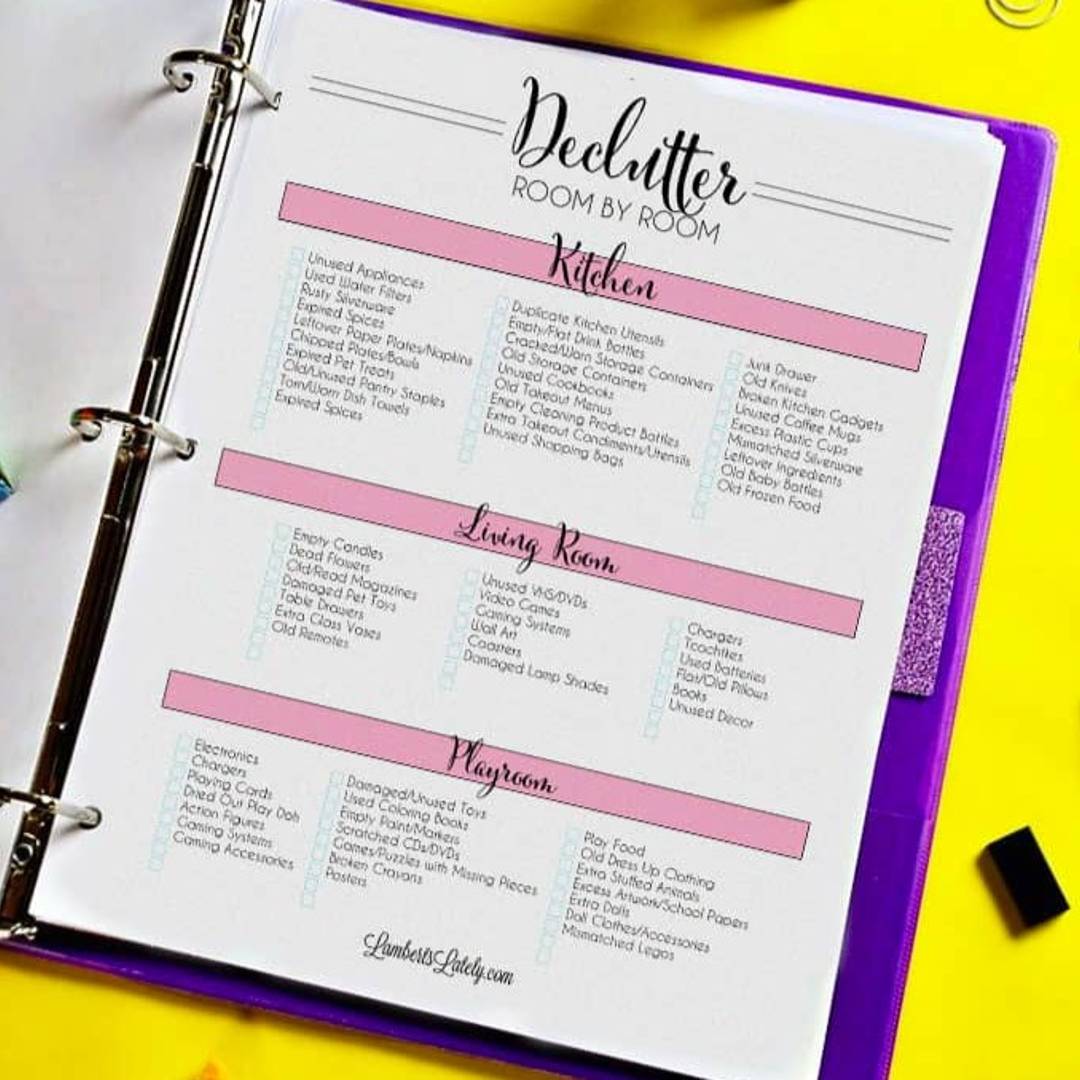 Declutter
ROOM BY ROOM
Kitchen
Unused Appliances
Used Water Filters
Rusty Silverware
Expired Spices
Leftover Paper Plates/Napkins
Chipped Plates/Bowls
Expired Pet Treats
Old/Unused Pantry Staples
Torn/Worn Dish Towels
Expired Spices
Duplicate Kitchen Utensils
Empty/Flat Drink Bottles
Cracked/Worn Storage Containers
Old Storage Containers
Unused Cookbooks
Old Takeout Menus
Empty Cleaning Product Bottles
Extra Takeout Condiments/Utensils
Unused Shopping Bags
Junk Drawer
Old Knives
Broken Kitchen Gadgets
Unused Coffee Mugs
Excess Plastic Cups
Mismatched Silverware
Leftover Ingredients
Old Baby Bottles
Old Frozen Food
Living Room
Empty Candles
Dead Flowers
Old/Read Magazines
Damaged Pet Toys
Table Drawers
Extra Glass Vases
Old Remotes
Unused VHS/DVDs
Video Games
Gaming Systems
Wall Art
Coasters
Damaged Lamp Shades
Chargers
Tchotchkes
Used Batteries
Flat/Old Pillows
Books
Unused Decor
Playroom
Electronics
Chargers
Playing Cards
Dried Out Play Doh
Action Figures
Gaming Systems
Gaming Accessories
Damaged/Unused Toys
Used Coloring Books
Empty Paint/Markers
Scratched CDs/DVDs
Games/Puzzles with Missing Pieces
Broken Crayons
Posters
Play Food
Old Dress Up Clothing
Extra Stuffed Animals
Excess Artwork/School Papers
Extra Dolls
Doll Clothes/Accessories
Mismatched Legos
LambertsLately.com